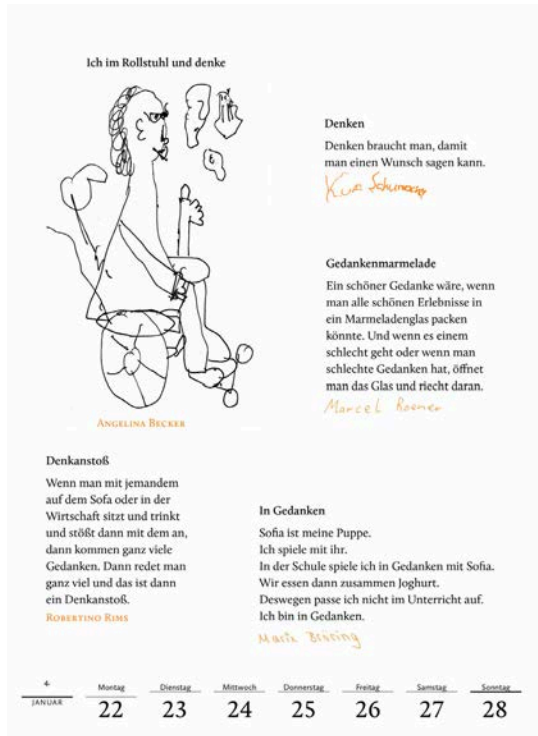 Ich im Rollstuhl und denke
ANGELINA BECKER
Denken
Denken braucht man, damit
man einen Wunsch sagen kann.
Gedankenmarmelade
Ein schöner Gedanke wäre, wenn
man alle schönen Erlebnisse in
ein Marmeladenglas packen
könnte. Und wenn es einem
schlecht geht oder wenn man
schlechte Gedanken hat, öffnet
man das Glas und riecht daran.
Marcel
Denkanstoß
Wenn man mit jemandem
auf dem Sofa oder in der
Wirtschaft sitzt und trinkt
und stößt dann mit dem an,
dann kommen ganz viele
Gedanken. Dann redet man
ganz viel und das ist dann
ein Denkanstoß.
ROBERTINO RIMS
In Gedanken
Sofia ist meine Puppe.
Ich spiele mit ihr.
In der Schule spiele ich in Gedanken mit Sofia.
Wir essen dann zusammen Joghurt.
Deswegen passe ich nicht im Unterricht auf.
Ich bin in Gedanken.
Maria
4. Montag Dienstag Mittwoch Donnerstag Freitag Samstag Sonntag
JANUAR 22 23 24 25 26 27 28